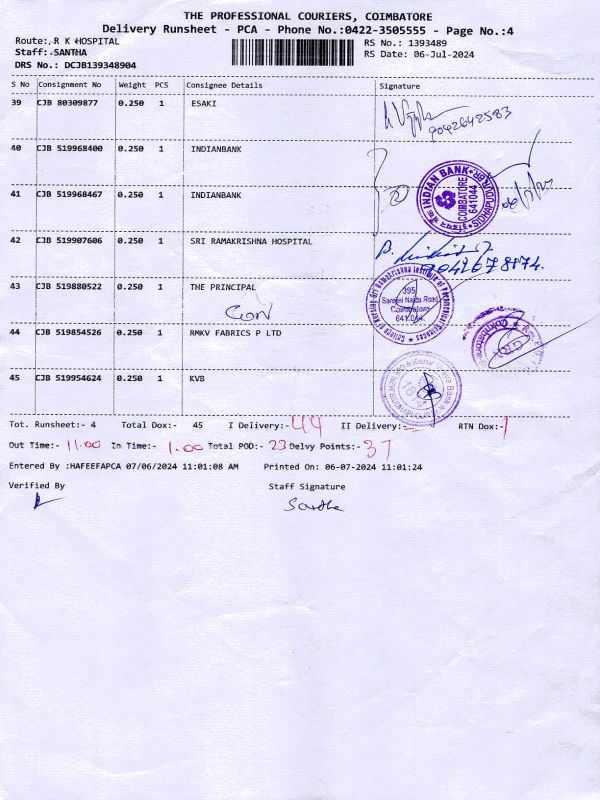 THE PROFESSIONAL COURIERS, COIMBATORE
Delivery Runsheet - PCA - Phone No.:0422-3505555 - Page No.:4
Route:. R K HOSPITAL
Staff:-SANTHA
DRS No.: DCJB139348904
RS No.: 1393489
RS Date: 06-Jul-2024
S No Consignment No Weight PCS Consignee Details Signature
39 CJB 80309877 0.250 1 ESAKI
9092642583
40 CJB 519968400 0.250 1 INDIANBANK
41 CJB 519968467 0.250 1 INDIANBANK
INDIAN BANK
COIMBATORE
641044
42 CJB 519907606 0.250 1 SRI RAMAKRISHNA HOSPITAL
43 CJB 519880522 0.250 1 THE PRINCIPAL
395
Sarojini Naidu Road
Coimbatore
641 044.
44 CJB 519854526 0.250 1 RMKV FABRICS P LTD
45 CJB 519954624 0.250 1 KVB
Tot. Runsheet:- 4 Total Dox:- 45 I Delivery:- 44 II Delivery:- RTN Dox:- 1
Out Time:- 11.00 In Time:- 1.00 Total POD:- 23 Delvy Points:- 37
Entered By :HAFEEFAPCA 07/06/2024 11:01:08 AM Printed On: 06-07-2024 11:01:24
Verified By Staff Signature